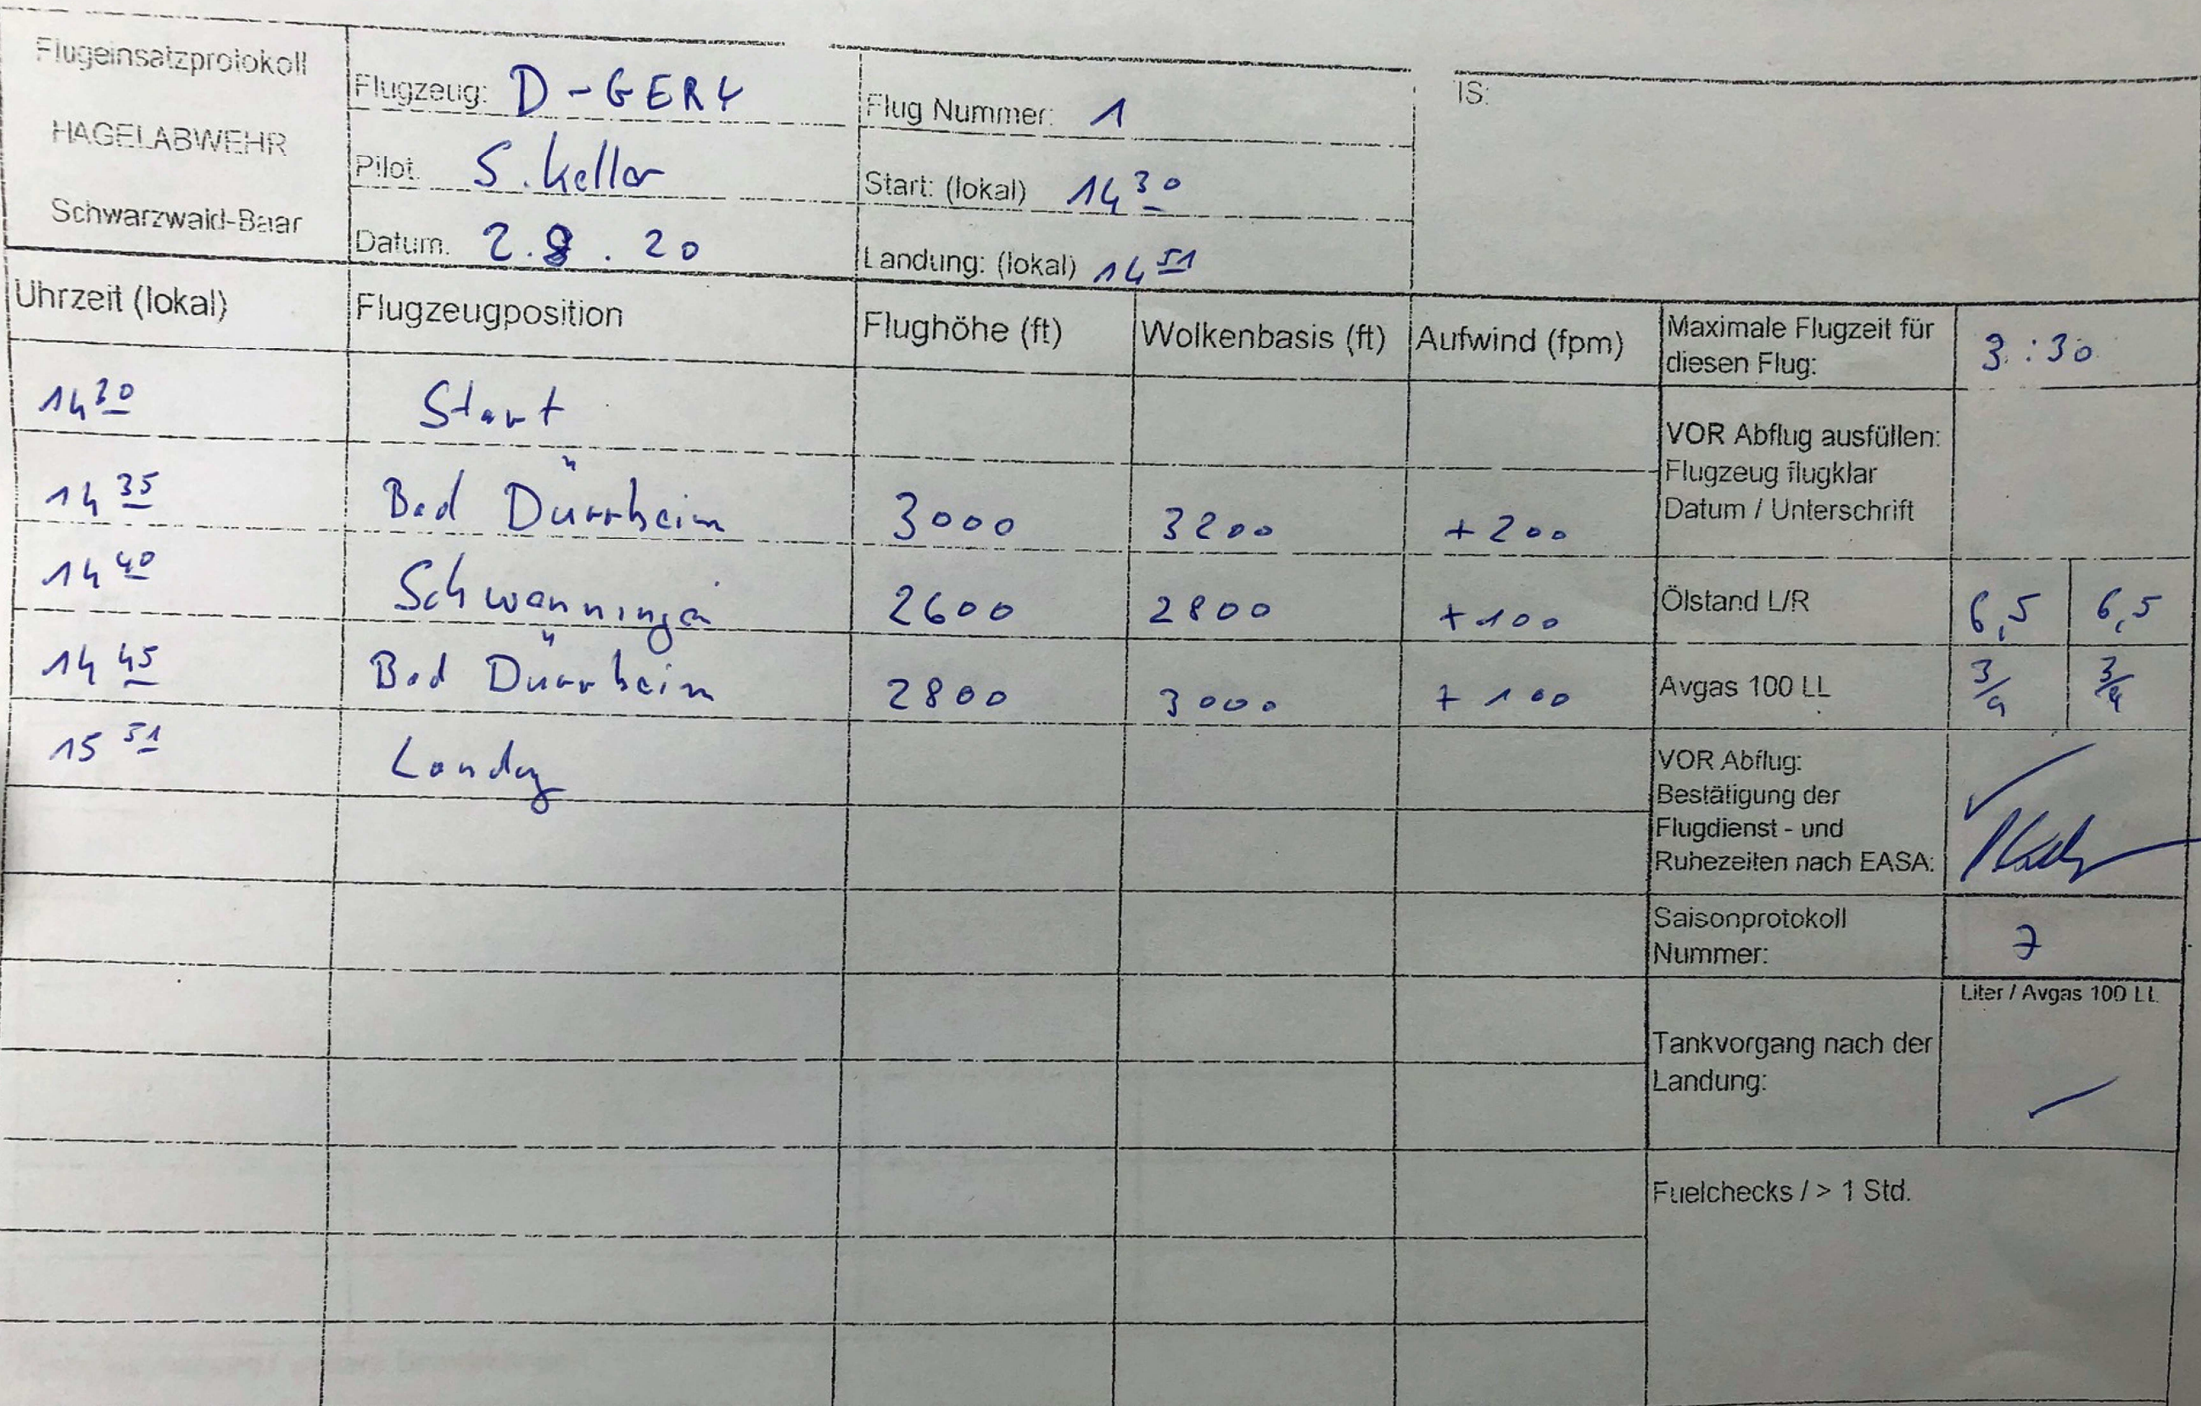 Flugeinsatzprotokoll
HAGELABWEHR
Schwarzwald-Baar
Flugzeug: D-GERY
Pilot. S. Keller
Datum. 2.8.20
Flug Nummer: 1
Start: (lokal) 14 30
Landung: (lokal) 14 51
IS:
Uhrzeit (lokal) Flugzeugposition Flughöhe (ft) Wolkenbasis (ft) Aufwind (fpm)
14 30 Start
14 35 Bad Dürrheim 3000 3200 +200
14 40 Schwenningen 2600 2800 +100
14 45 Bad Dürrheim 2800 3000 +100
15 51 Landg
Maximale Flugzeit für
diesen Flug: 3:30
VOR Abflug ausfüllen:
Flugzeug flugklar
Datum / Unterschrift
Ölstand L/R 6,5 6,5
Avgas 100 LL 3/4 3/4
VOR Abflug:
Bestätigung der
Flugdienst - und
Ruhezeiten nach EASA:
Saisonprotokoll
Nummer: 7
Liter / Avgas 100 LL
Tankvorgang nach der
Landung:
Fuelchecks / > 1 Std.